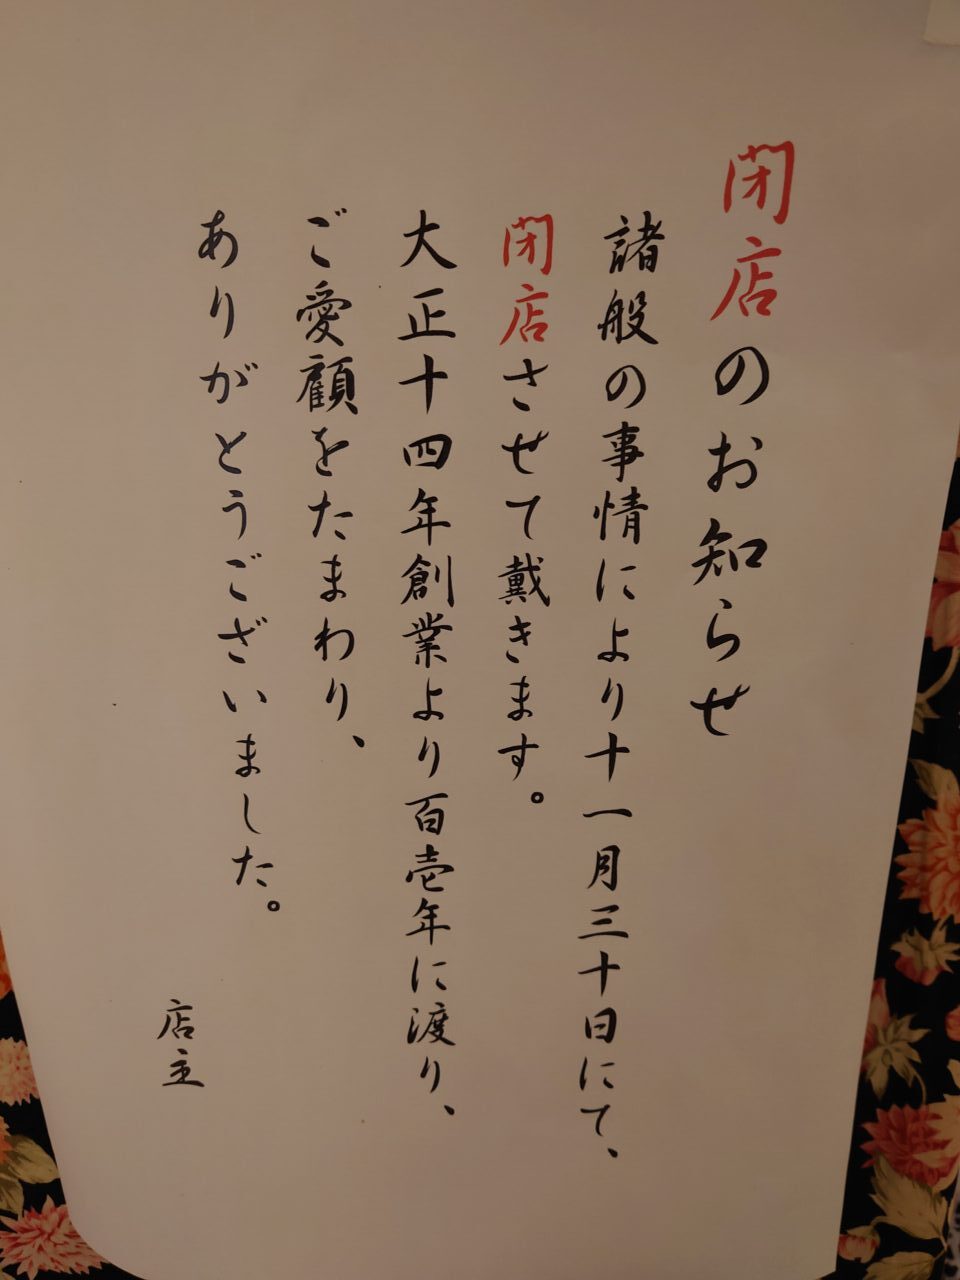 閉店のお知らせ
諸般の事情により十一月三十日にて、
閉店させて戴きます。
大正十四年創業より百壱年に渡り、
ご愛顧をたまわり、
ありがとうございました。
店主